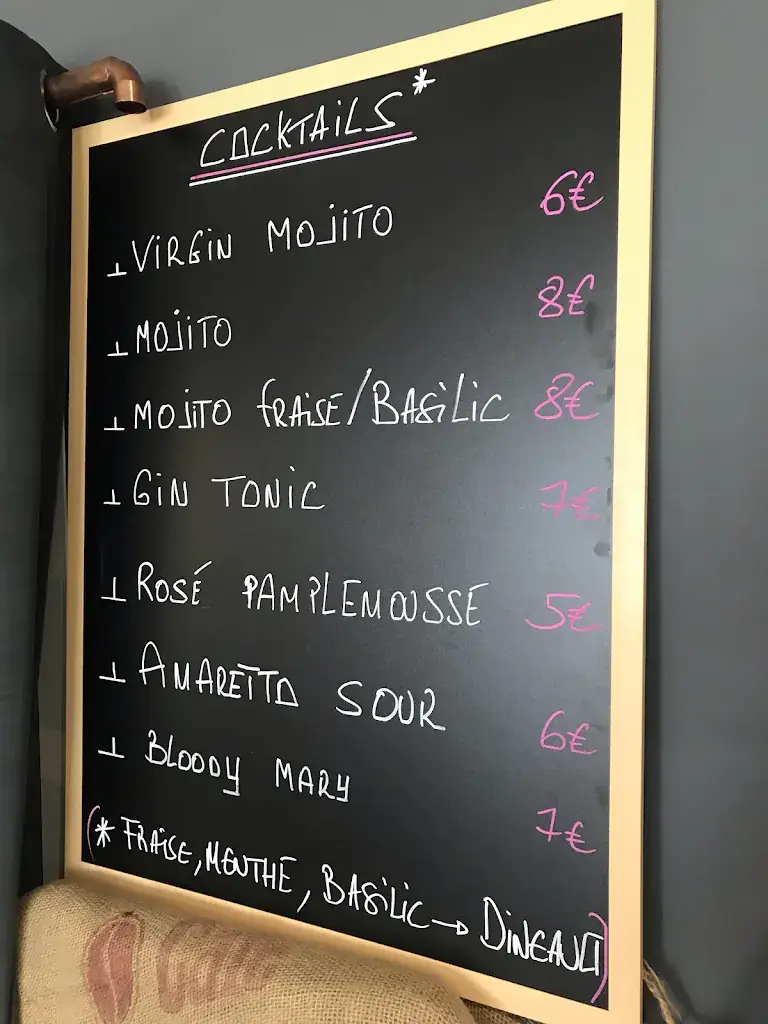 COCKTAiLS*
⊥ ViRGiN MOJiTO 6€
⊥ MOJiTO 8€
⊥ MOJiTO fRAiSE/BASiLiC 8€
⊥ GiN TONiC 7€
⊥ ROSÉ PAMPLEMOUSSE 5€
⊥ AMARETTO SOUR 6€
⊥ BLOODY MARY 7€
(* FRAiSE, MENTHE, BASiLiC → DiNEAULT)